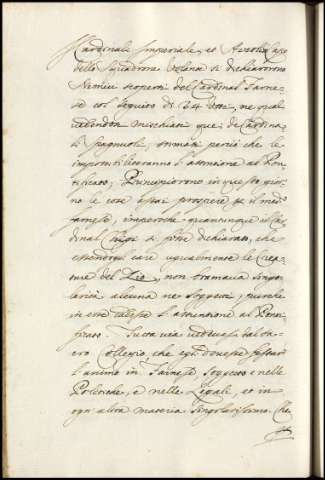 Cardinali Imperiale, et Azzolino capi
dello Squadrone Volante si dichiarorno
Nemici scoperti del Cardinal Farne-
se col seguito di
vedendosi mischiati que' Cardina-
li Spagnuoli, stimati perciò che le
impossibilitavano l'assentione al Pon-
tificato; Principiorno in questo gior-
no le cose assai prospere p il med.
farnese, imperoche quantunque il Car-
dinal Chigi si fosse dichiarato, che
essendogli care ugualmente le Crea-
ture del Zio, non bramava singo-
larità alcuna ne Soggetti, purche
in essi cadesse l'assentione al Ponti-
ficato. Tutta via vedevasi dal Sa-
cro Collegio, che egli dovesse fissare
l'animo in Farnese, Soggetto e nelle
Politiche, e nelle Legali, et in
ogni altra materia singolarissimo. Che